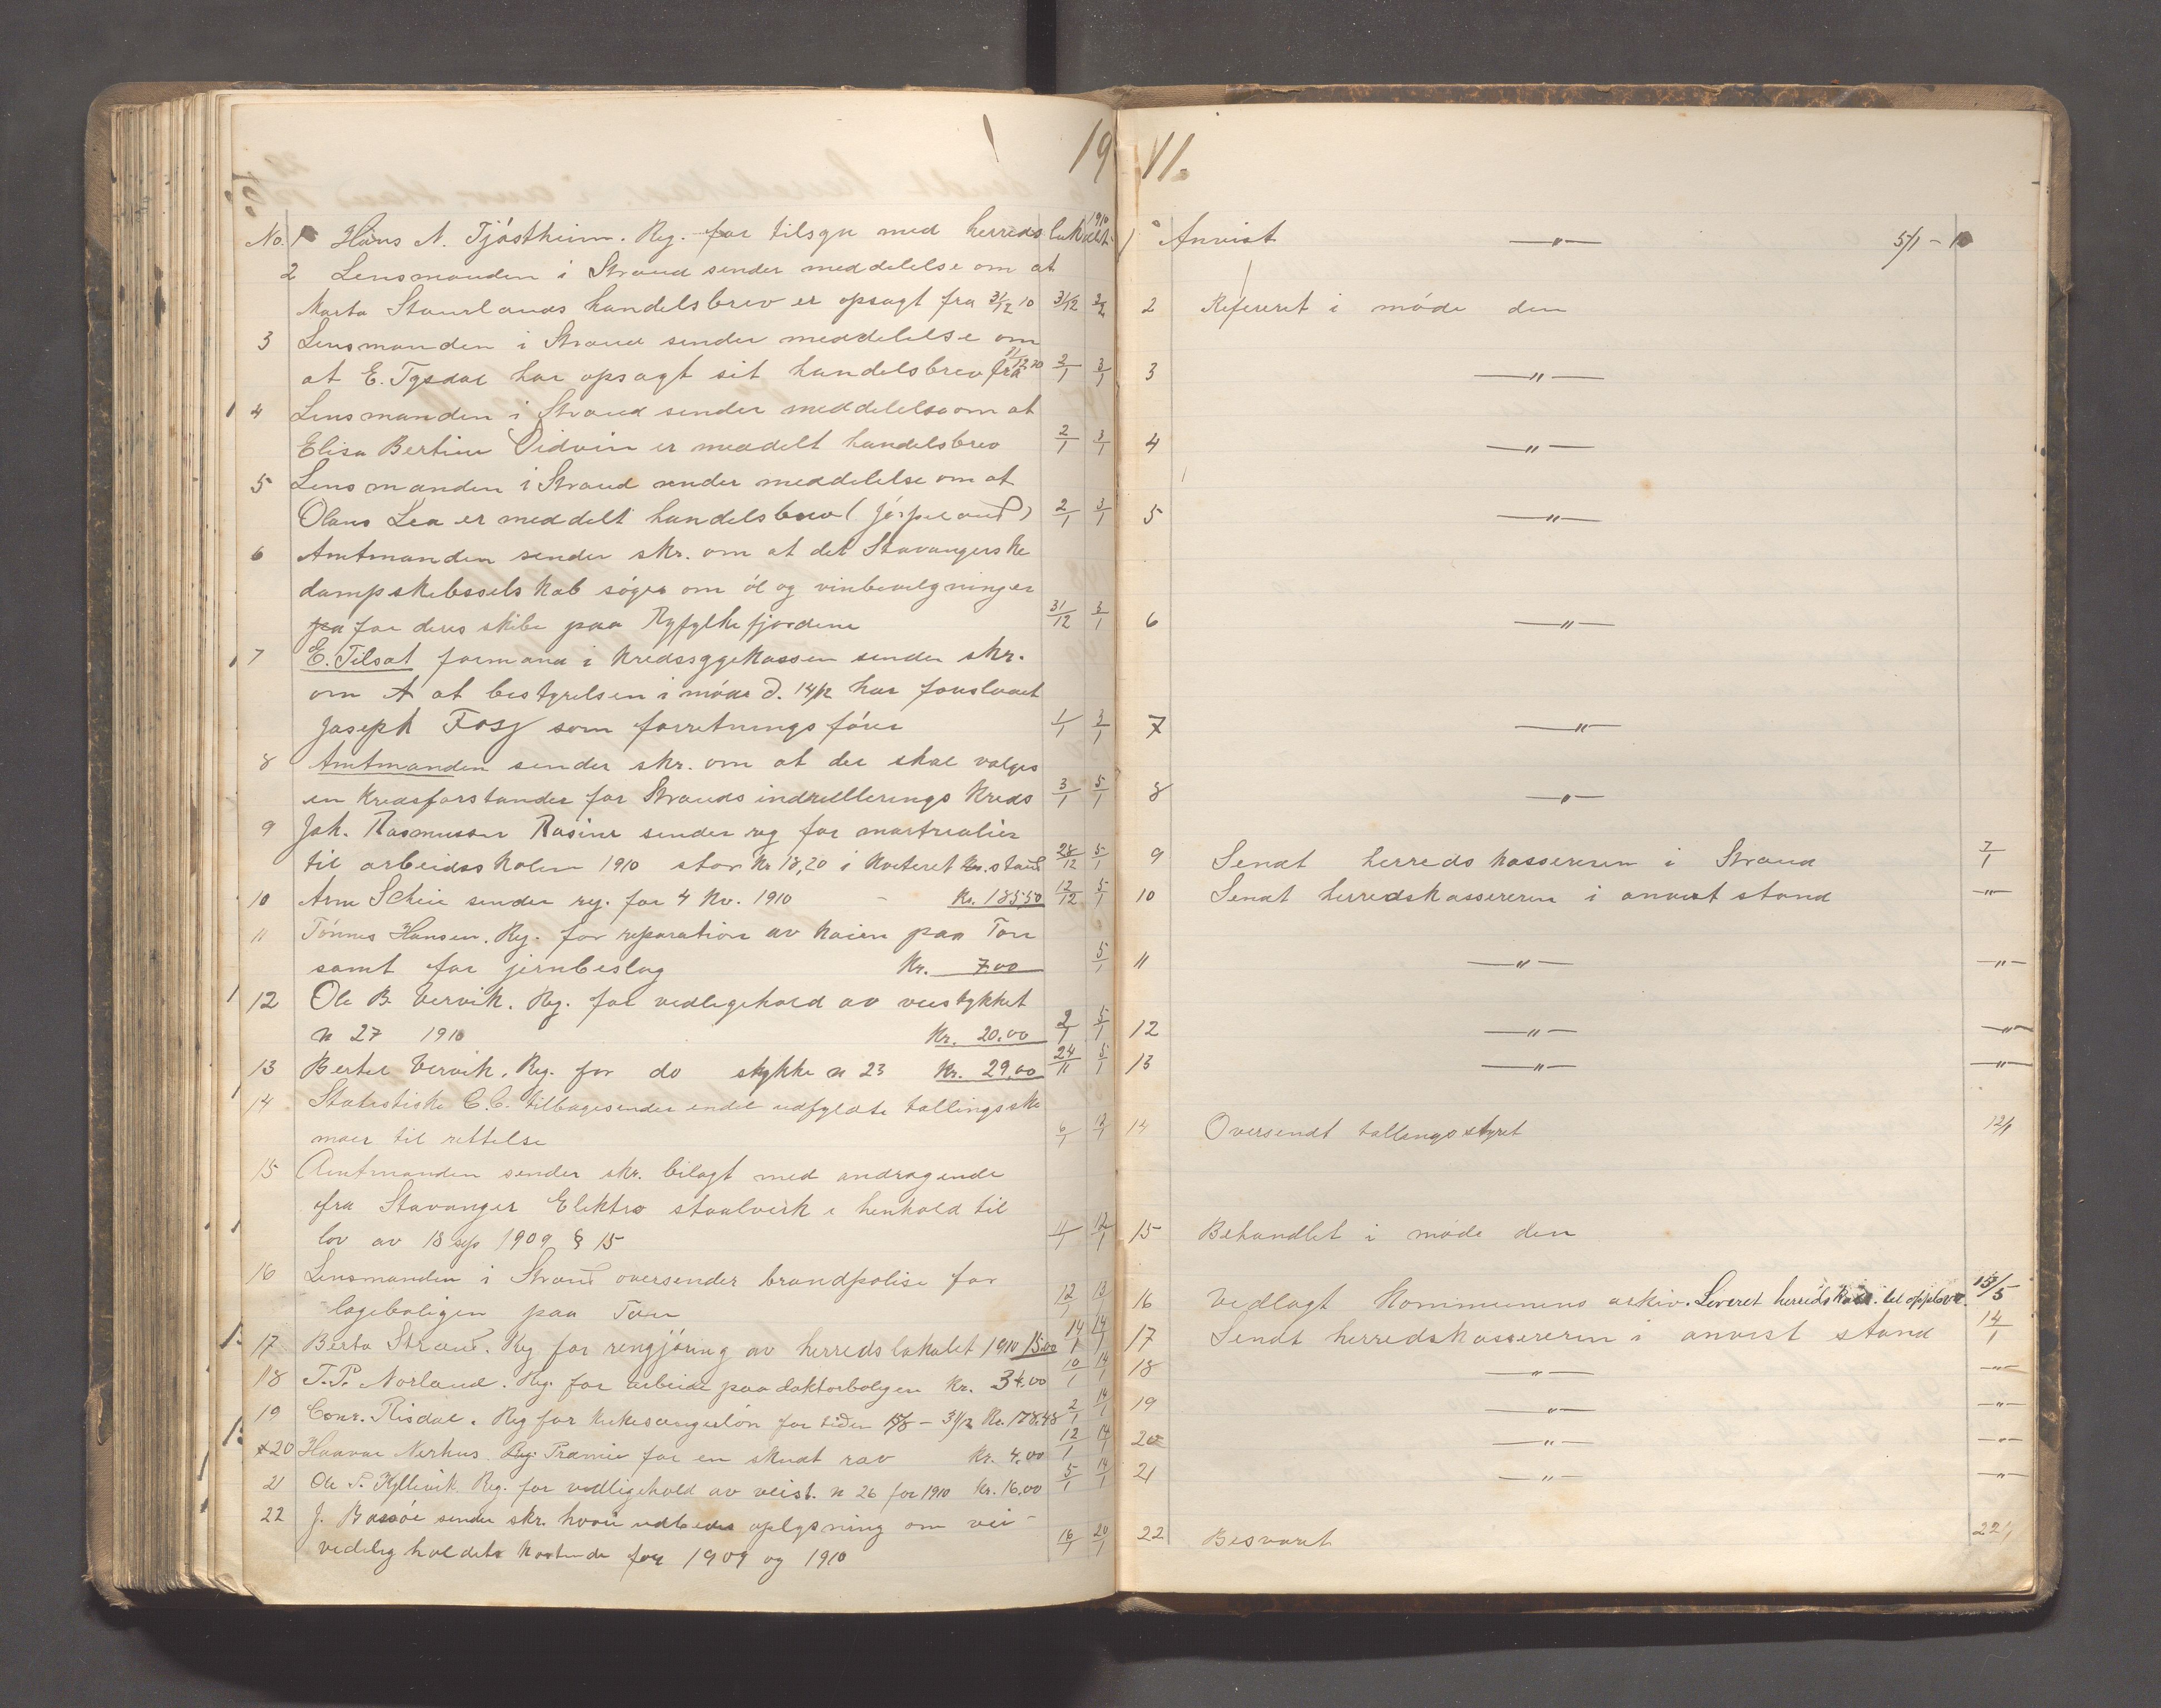 1911.
No. 1 Hans N. Tjøstheim. Reg. for tilsyn med herredslokalet 1910
2 Lensmanden i Strand sender meddelelse om at
Marta Staurlands handelsbrev er opsagt fra 31/12 10 31/12
3 Lensmanden i Strand sender meddelelse om
at E. Tysdal har opsagt sit handelsbrev fra 31/12 10 2/1 3/1
4 Lensmanden i Strand sender meddelelse om at
Elisa Bertine Vidvin er meddelt handelsbrev 2/1 3/1
5 Lensmanden i Strand sender meddelelse om at
Olaus Lea er meddelt handelsbrev (Jørpeland) 2/1 3/1
6 Amtmanden sender skr. om at det Stavangerske
dampskibsselskab søger om øl og vinbevilgninger
for deres skibe paa Ryfylkefjordene 31/12 3/1
7 E. Tilsat formand i kredssygekassen sender skr.
om at bestyrelsen i møde d. 14/12 har foreslaaet
Joseph Fosj som forretningsfører 1/1 3/1
8 Amtmanden sender skr. om at der skal valges
en kredsforstander for Strands indrulleringskreds 3/1 5/1
9 Joh. Rasmussen Rasine sender reg for
til arbeidsskolen 1910 stor kr 18,20 i kvitteret stand 28/12 5/1
10 Arne Scheie sender reg. for 4 kv. 1910 - Kr. 185,50 12/12 5/1
11 Tønnes Hansen. Reg. for reparation av kaien paa Tou
samt for jernbeslag Kr. 7.00 5/1
12 Ole B. Vervik. Reg. for vedligehold av veistykket
n 27 1910 Kr. 20.00 2/1 5/1
13 Bertel Vervik. Reg. for do stykke n 23 Kr. 29,00 24/11 5/1
14 Statistiske C.B. tilbagesender endel udfyldte tællingsske
maer til rettelse 6/1 12/1
15 Amtmanden sender skr. bilagt med andragende
fra Stavanger Elektro staalverk i henhold til
lov av 18 sep 1909 § 15 11/1 12/1
16 Lensmanden i Strand oversender brandpolise for
lægeboligen paa Tou 12/1 13/1
17 Berta Strand. Reg for rengjøring av herredslokalet 1910 15.00 14/1 14/1
18 T. P. Norland. Reg. for arbeide paa doktorboligen Kr. 34.00 10/1 14/1
19 Conr. Risdal. Reg for kirkesangerløn for tiden 15/8 - 31/12 Kr. 178.48 2/1 14/1
x20 Haavar Nerhus Præmie for en skudt rav Kr. 4.00 12/1 14/1
21 Ole P. Kyllevik Reg. for vedligehold av veist. n 26 for 1910 Kr. 16.00 5/1 14/1
22 J. Bassøe sender skr. hvori udbedes oplysning om vei-
vedligholdets kostende for 1909 og 1910 16/1 20/1
1 Anvist —"— 5/1 - 1
2 Refereret i møde den
3 —"—
4 —"—
5 —"—
6 —"—
7 —"—
8 —"—
9 Sendt herredskassereren i Strand 7/1
10 Sendt herredskassereren i anvist stand —"—
11 —"— —"—
12 —"— —"—
13 —"— —"—
14 Oversendt tællingsstyret 12/1
15 Behandlet i møde den
16 Vedlagt Kommunens arkiv. Leveret herredskass. til opbev. 15/5
17 Sendt herredskassereren i anvist stand 14/1
18 —"— —"—
19 —"— —"—
20 —"— —"—
21 —"— —"—
22 Besvaret 22/1